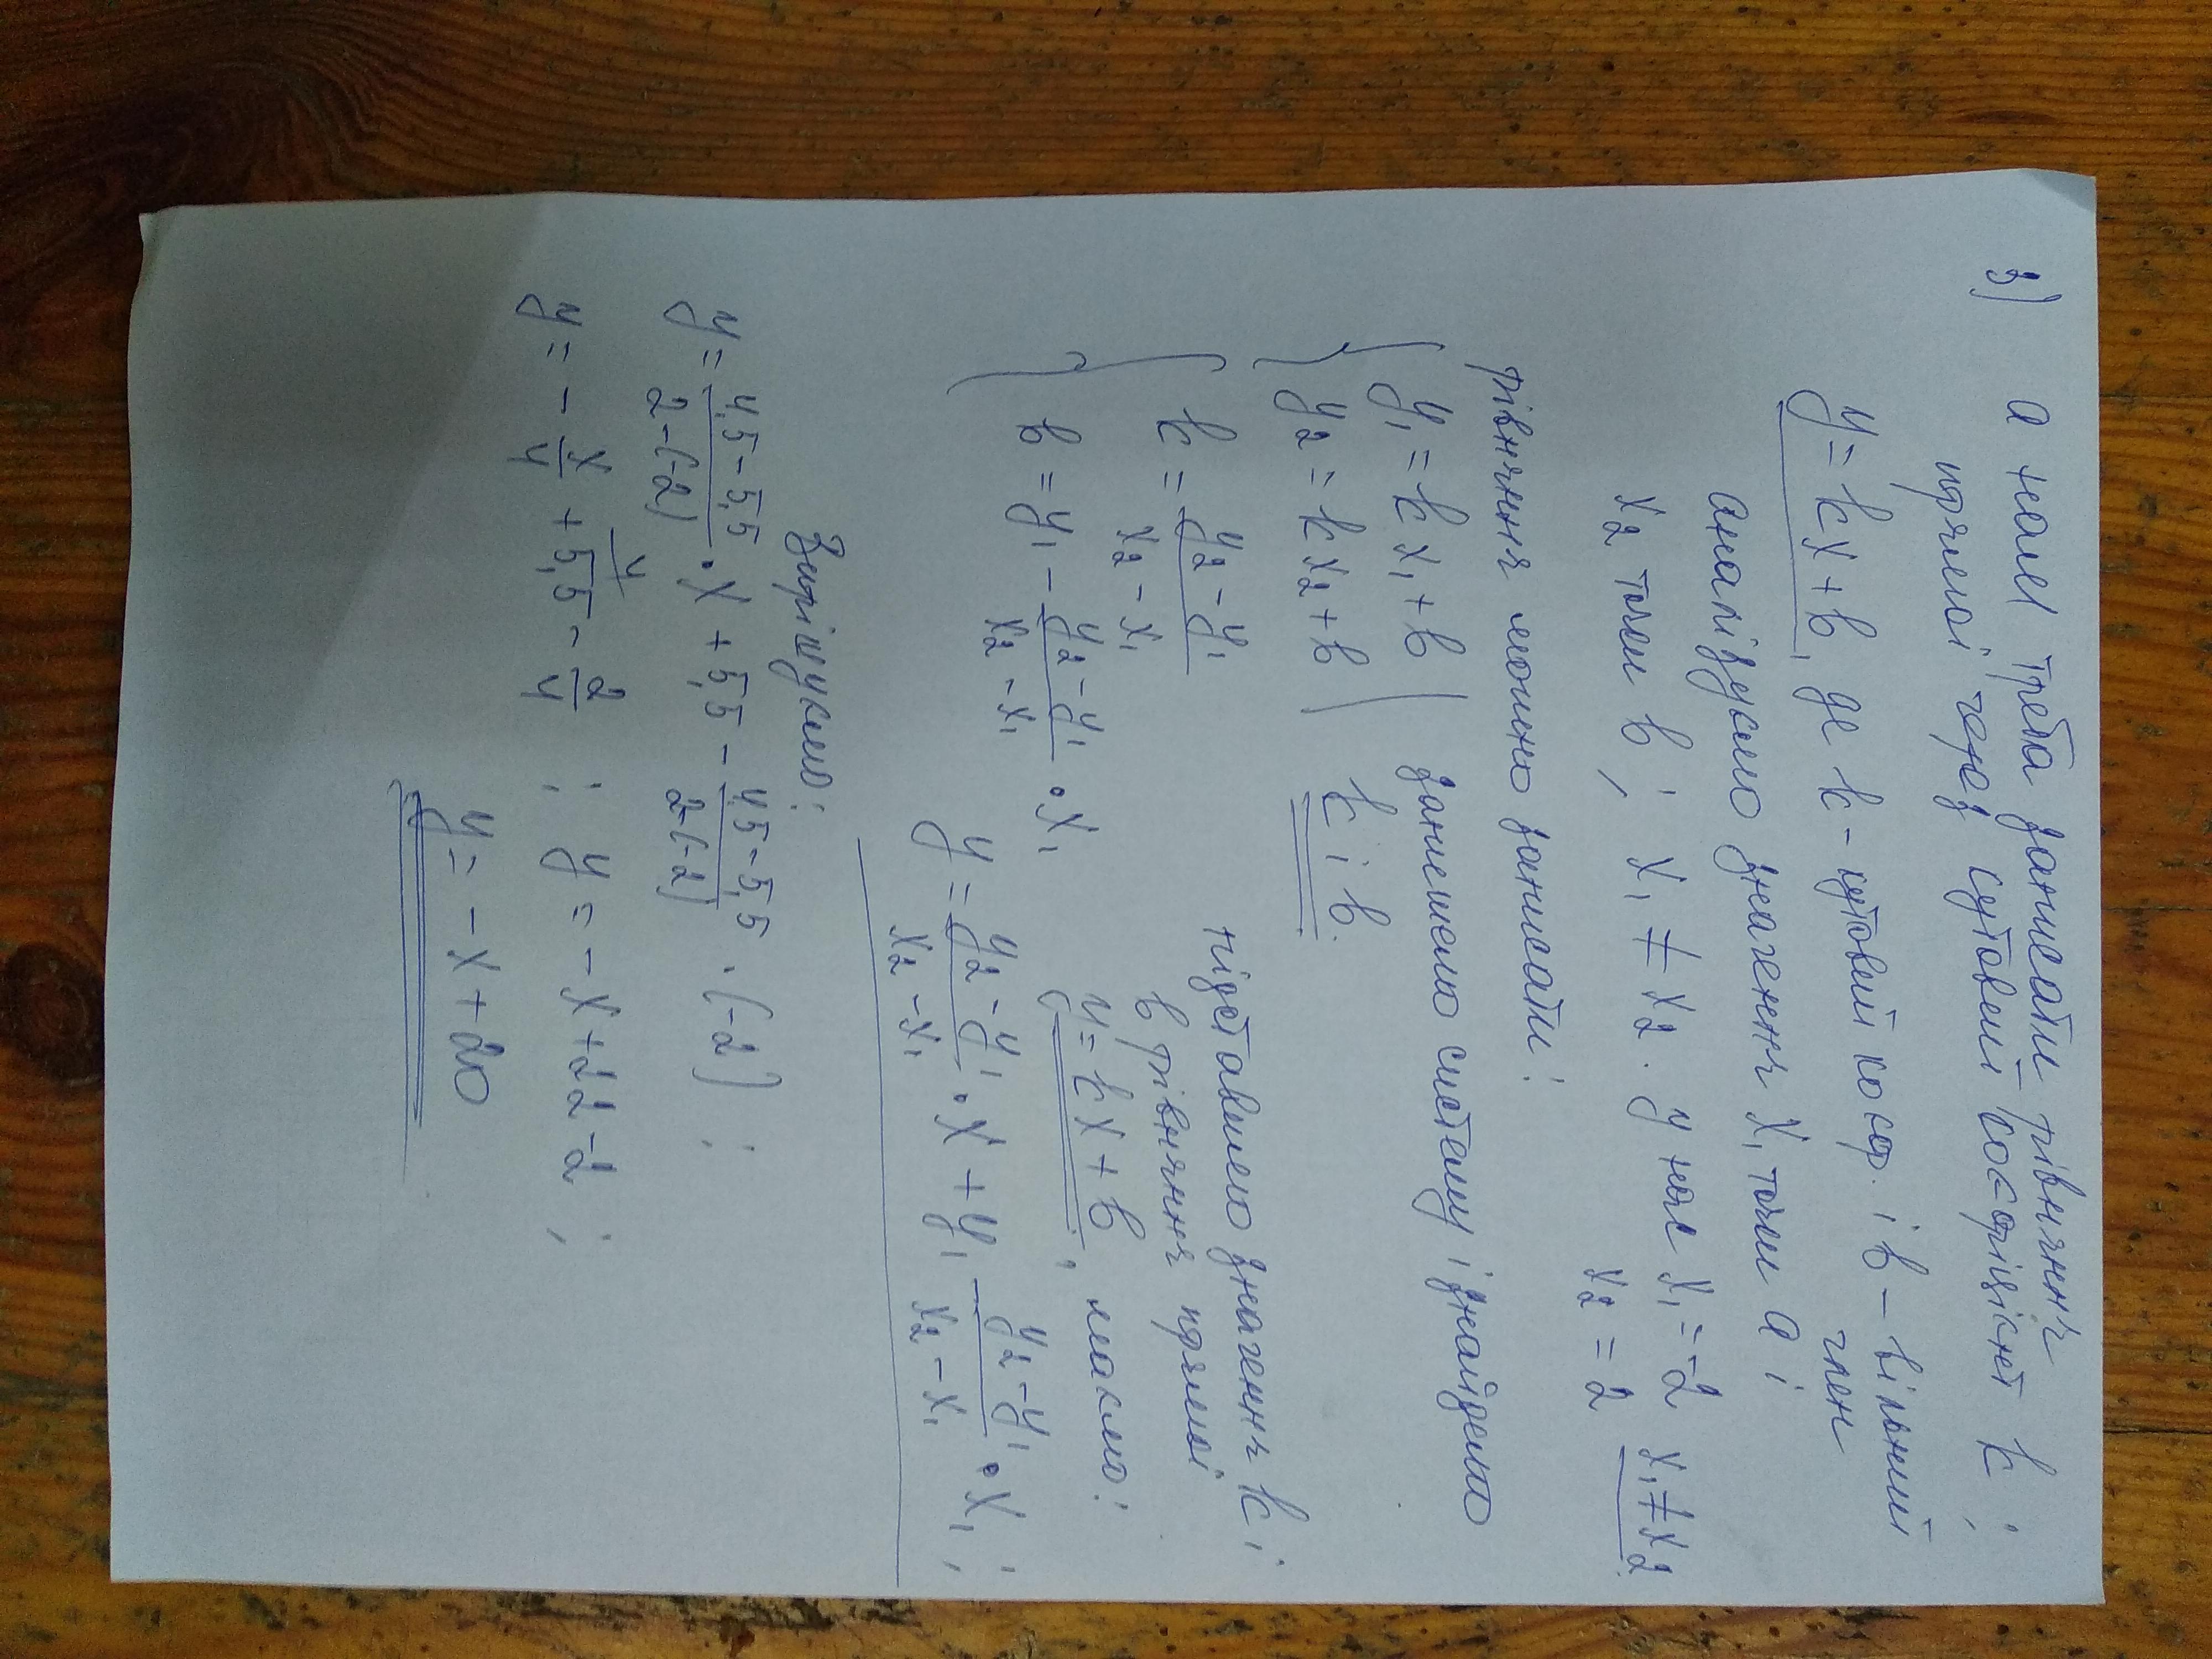 3) а нам треба записати рівнянн
прямої через кутовий коефіцієнт k;
y = kx + b, де k - кутовий коеф. і b - вільний
член
аналізуємо значенн x₁ точки a і
x₂ точки b; x₁ ≠ x₂. у нас x₁ = -2 x₁ ≠ x₂
x₂ = 2
рівнянн можно записати:
{ y₁ = kx₁ + b ) запишемо систему і знайдемо
{ y₂ = kx₂ + b ) k і b.
{ k = (y₂ - y₁)/(x₂ - x₁) підставимо значенн k і
b рівнянн прямої
{ b = y₁ - (y₂ - y₁)/(x₂ - x₁) · x₁ y = kx + b, маємо:
y = (y₂ - y₁)/(x₂ - x₁) · x + y₁ - (y₂ - y₁)/(x₂ - x₁) · x₁;
Вирішуємо:
y = (4,5 - 5,5)/(2 - (-2)) · x + 5,5 - (4,5 - 5,5)/(2 - (-2)) · (-2);
y = - x/4 + 5,5 - 2/4; y = -x + 22 - 2;
y = -x + 20